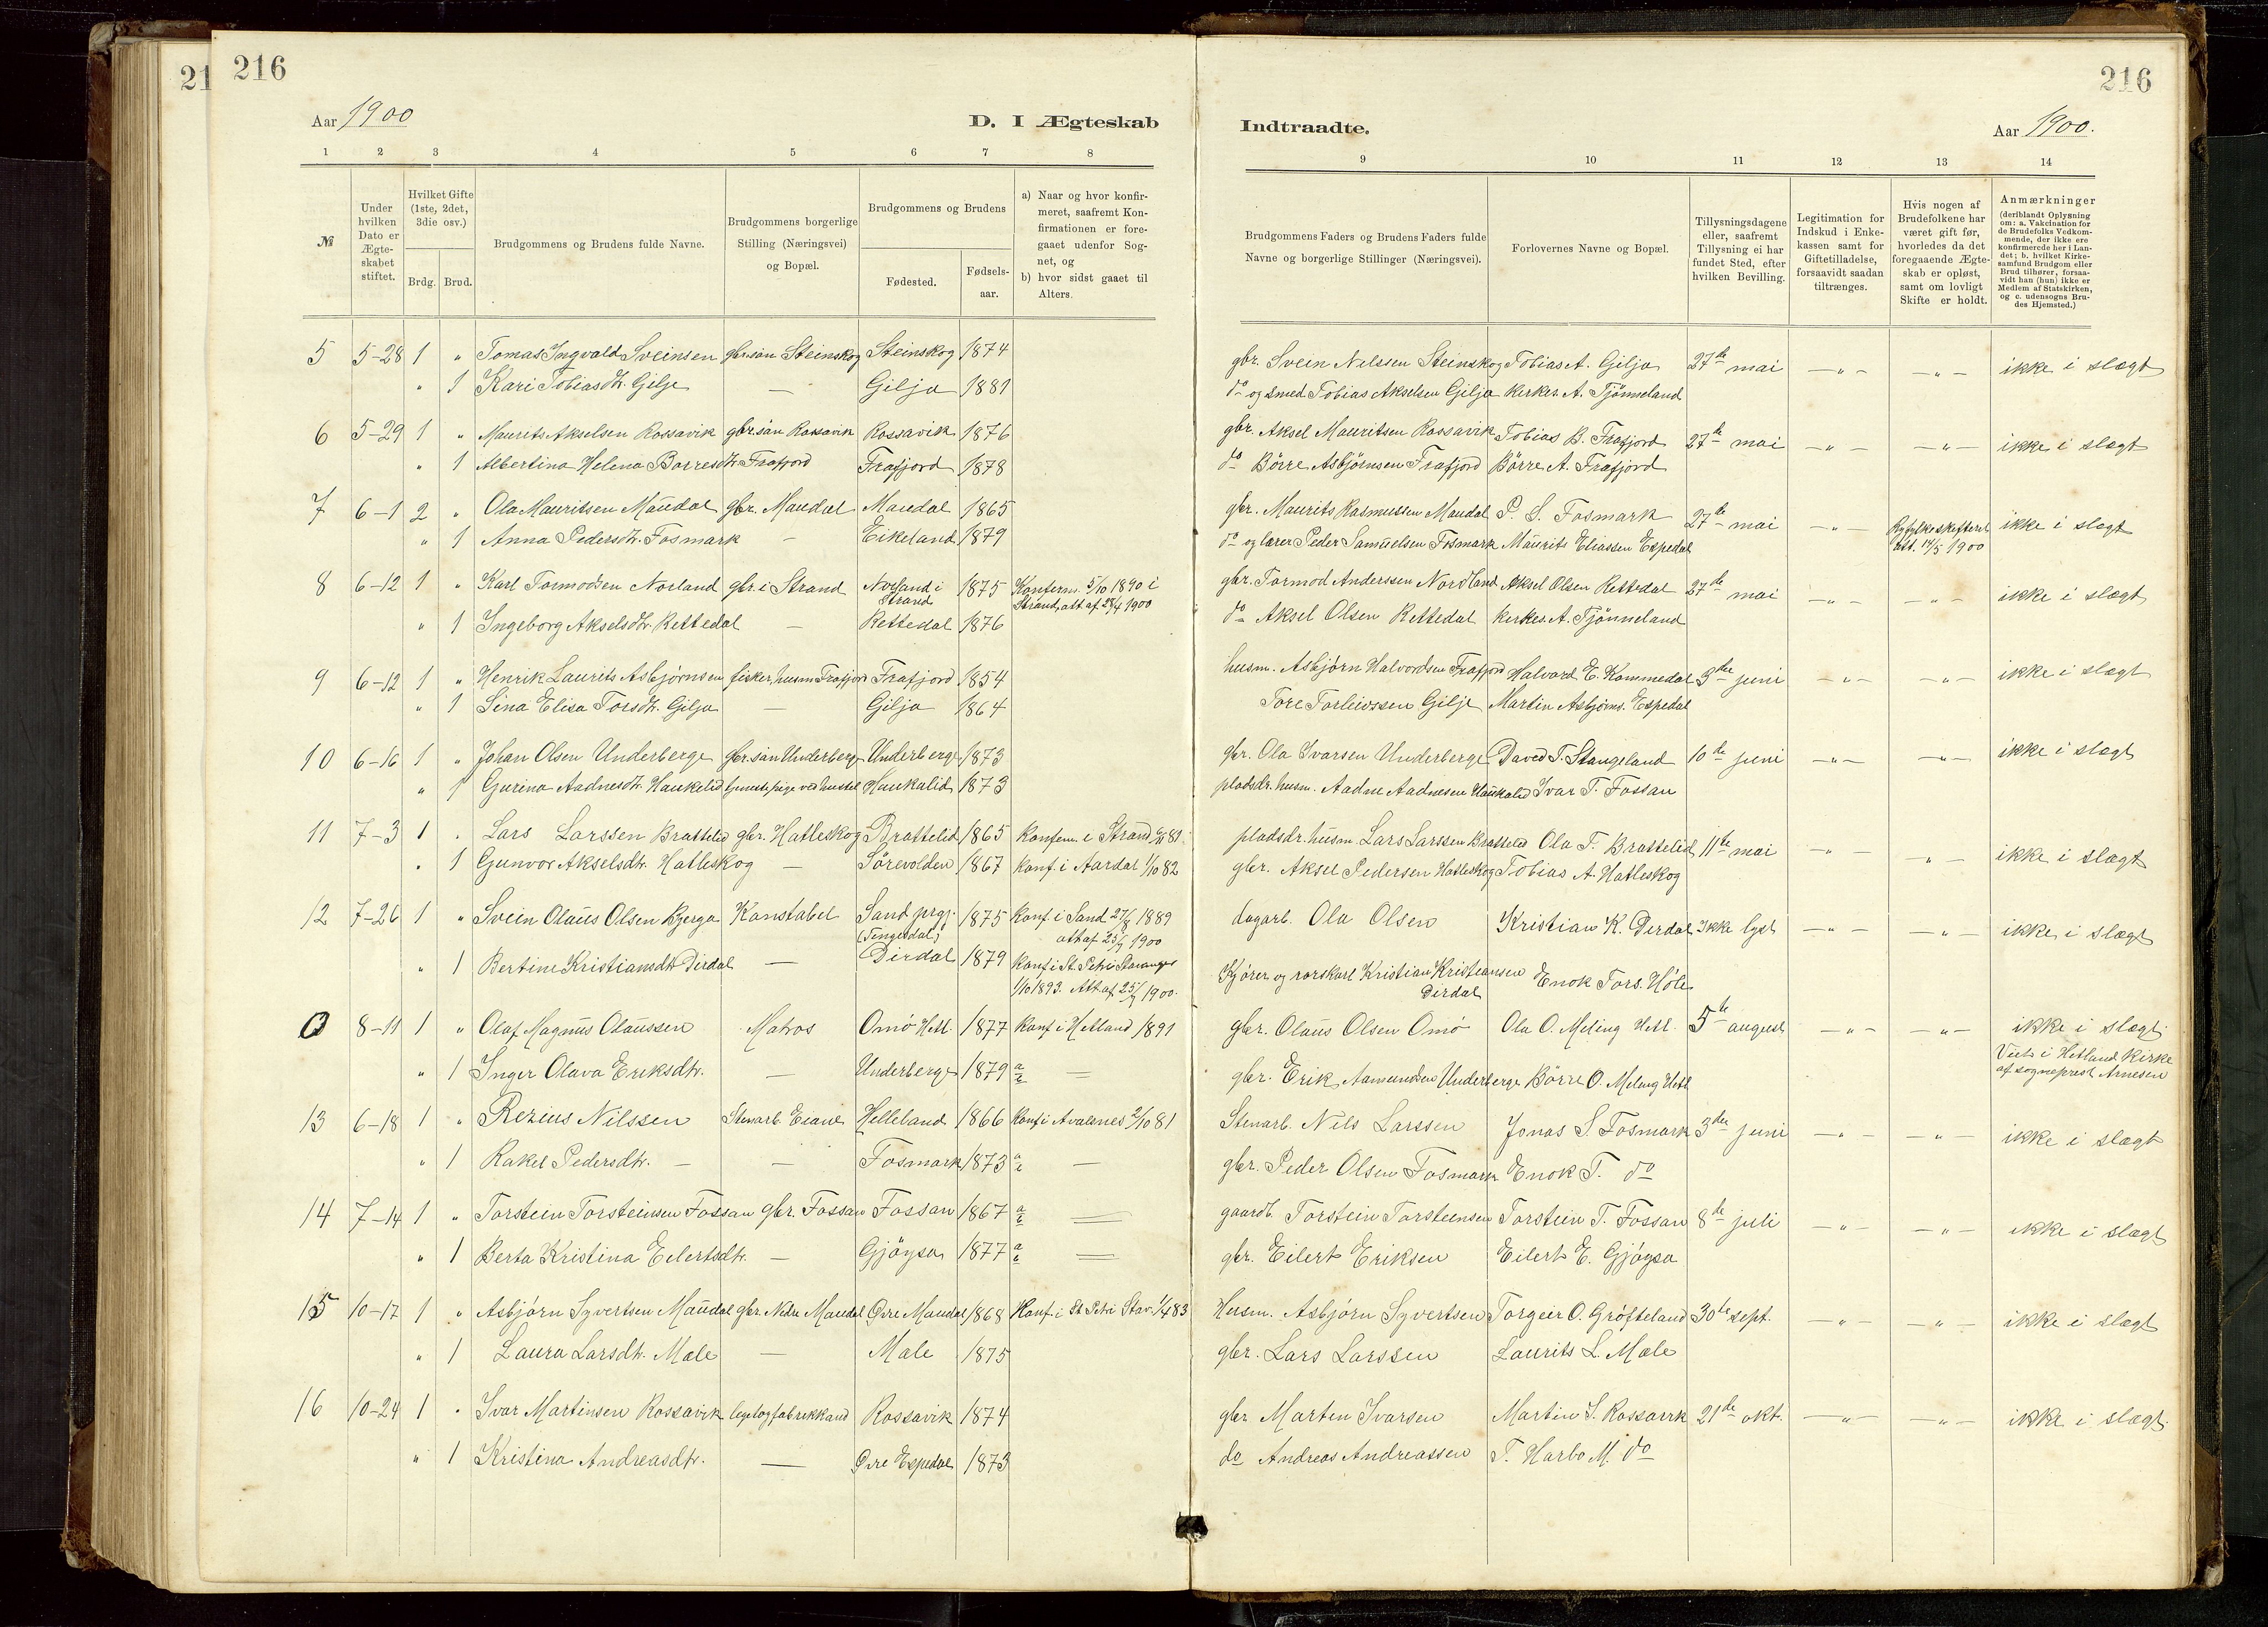 21
216
Aar 1900
D. I Ægteskab
1 2 3 4 5 6 7 8
№
Under hvilken Dato er Ægteskabet stiftet.
Hvilket Gifte (1ste, 2det, 3die osv.)
Brdg. Brud.
Brudgommens og Brudens fulde Navne.
Brudgommens borgerlige Stilling (Næringsvei) og Bopæl.
Brudgommens og Brudens
Fødested. Fødselsaar.
a) Naar og hvor konfirmeret, saafremt Konfirmationen er foregaaet udenfor Sognet, og
b) hvor sidst gaaet til Alters.
5 5-28 1 " Tomas Ingvald Sveinsen gbr. søn Steinskog Steinskog 1874
" 1 Kari Tobiasdtr. Gilje — Gilja 1881
6 5-29 1 " Maurits Akselsen Rossavik gbr. søn Rossavik Rossavik 1876
" 1 Albertina Helena Børresdtr. Frafjord Frafjord 1878
7 6-1 2 " Ola Mauritsen Maudal gbr. Maudal Maudal 1865
" 1 Anna Pedersdtr. Fosmark - Eikeland 1879
8 6-12 1 " Karl Tormodsen Norland gbr. i Strand Norland i Strand 1875 Konferm. 5/10 1890 i Strand, att. af 28/4 1900
" 1 Ingeborg Akselsdtr. Rettedal — Rettedal 1876
9 6-12 1 " Henrik Laurits Asbjørnsen fisker, husm Frafjord Frafjord 1854
" 1 Sina Elisa Torsdtr. Gilja — Gilja 1864
10 6-16 1 " Johan Olsen Underberge gbr. søn Underberge Underberge 1873
" 1 Gurina Aadnesdtr. Haukelid tjenestepige Haukalid 1873
11 7-3 1 " Lars Larssen Brattelid gbr. Hatleskog Brattelid 1865 Konferm. i Strand 81
" 1 Gunvor Akselsdtr. Hatleskog — Sørevolden 1867 Konf. i Aardal 1/10 82
12 7-26 1 " Svein Olaus Olsen Bjerga Konstabel Sand prgj. (Tengesdal) 1875 Konf. i Sand 27/8 1889
att af 25/7 1900
" 1 Bertine Kristiansdtr. Dirdal — Dirdal 1879 Konf. i St. Petri Stavanger
1/10 1893. Att. af 25/7 1900.
0 8-11 1 " Olaf Magnus Olaussen Matros Omö Hetl. 1877 Konf. i Hetland 1891
" 1 Inger Olava Eriksdtr. — Underberge 1879 a/b —
13 6-18 1 " Rezius Nilssen Stenarb. Eiane Helleland 1866 Konf. i Avalsnes 2/10 81
" 1 Rakel Pedersdtr. — — Fosmark 1873 a/b —
14 7-14 1 " Torstein Torsteinsen Fossan gbr. Fossan Fossan 1867 a/b —
" 1 Berta Kristina Eilertsdtr. — Gjöysa 1877 a/b —
15 10-17 1 " Asbjörn Syvertsen Maudal gbr. Nedre Maudal Øvre Maudal 1868 Konf. i St Petri Stav. 1/4 83
" 1 Laura Larsdtr. Mæle — Mæle 1875
16 10-24 1 " Ivar Martinsen Rossavik Rossavik 1874
" 1 Kristina Andreasdtr. — Øvre Espedal 1873
216
Indtraadte.
Aar 1900.
9 10 11 12 13 14
Brudgommens Faders og Brudens Faders fulde Navne og borgerlige Stillinger (Næringsvei).
Forlovernes Navne og Bopæl.
Tillysningsdagene eller, saafremt Tillysning ei har fundet Sted, efter hvilken Bevilling.
Legitimation for Indskud i Enkekassen samt for Giftetilladelse, forsaavidt saadan tiltrænges.
Hvis nogen af Brudefolkene har været gift før, hvorledes da det foregaaende Ægteskab er opløst, samt om lovligt Skifte er holdt.
Anmærkninger
(deriblandt Oplysning om: a. Vakcination for de Brudefolks Vedkommende, der ikke ere konfirmerede her i Landet; b. hvilket Kirkesamfund Brudgom eller Brud tilhører, forsaavidt han (hun) ikke er Medlem af Statskirken, og c. udensogns Brudes Hjemsted.)
gbr. Svein Nilssen Steinskog Tobias A. Gilja 27de mai — " — — " — ikke i slægt
do og smed Tobias Akselsen Gilja Kirkes. A. Tjønneland
gbr. Aksel Mauritsen Rossavik Tobias B. Frafjord 27de mai — " — — " — ikke i slægt
do Börre Asbjörnsen Frafjord Börre A. Frafjord
gbr. Maurits Rasmussen Maudal P. S. Fosmark 27de mai — " — Ryfylke skifteret ikke i slægt
do og lærer Peder Samuelsen Fosmark Maurits Eliassen Espedal att. 14/5 1900
gbr. Tormod Anderssen Nordland Aksel Olsen Rettedal 27de mai — " — — " — ikke i slægt
do Aksel Olsen Rettedal Kirkes. A. Tjönneland
husm. Asbjörn Halvordsen Frafjord Halvard E. Kommedal 3die juni — " — — " — ikke i slægt
Tore Torleivssen Gilje Martin Asbjørns. Espedal
gbr. Ola Ivarsen Underberge David T. Stangeland 10de juni — " — — " — ikke i slægt
pladsdr. husm. Aadne Aadnesen Haukalid Ivar T. Fossan
pladsdr. husm. Lars Larssen Brattelid Ola T. Brattelid 11te mai — " — — " — ikke i slægt
gbr. Aksel Pedersen Hatleskog Tobias A. Hatleskog
dagarb. Ola Olsen Kristian K. Dirdal Ikke lyst — " — — " — ikke i slægt
Kjörer og rorskarl Kristian Kristiansen Enok Tors. Høle
Dirdal
gbr. Olaus Olsen Omö Ola O. Meling Hetl. 5te august — " — — " — ikke i slægt.
Viet i Hetland Kirke
af sogneprest Arnesen
gbr. Erik Aamundsen Underberge Börre O. Meling Hetl
Stenarb. Nils Larssen Jonas S. Fosmark 3die juni — " — — " — ikke i slægt
gbr. Peder Olsen Fosmark Enok T. do
gaardb. Torstein Torsteinsen Torstein T. Fossan 8de juli — " — — " — ikke i slægt
gbr. Eilert Eriksen Eilert E. Gjöysa
Husm. Asbjörn Syvertsen Torgeir O. Gröfteland 30te sept. — " — — " — ikke i slægt
gbr. Lars Larssen Laurits L. Mæle
gbr Marten Ivarsen Martin S. Rossavik 21de okt. — " — — " — ikke i slægt.
do Andreas Andreassen T. Harbo M. do